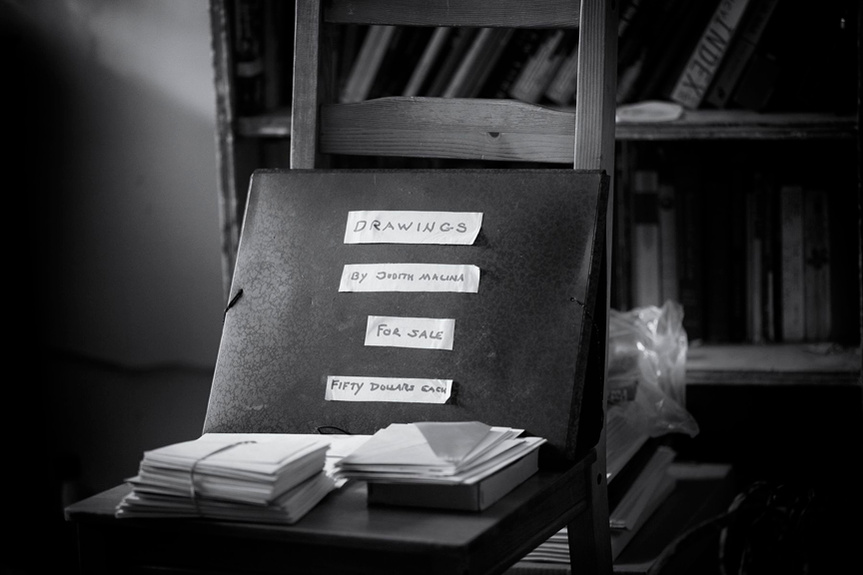 INDEX
DRAWINGS
BY JUDITH MALINA
FOR SALE
FIFTY DOLLARS EACH